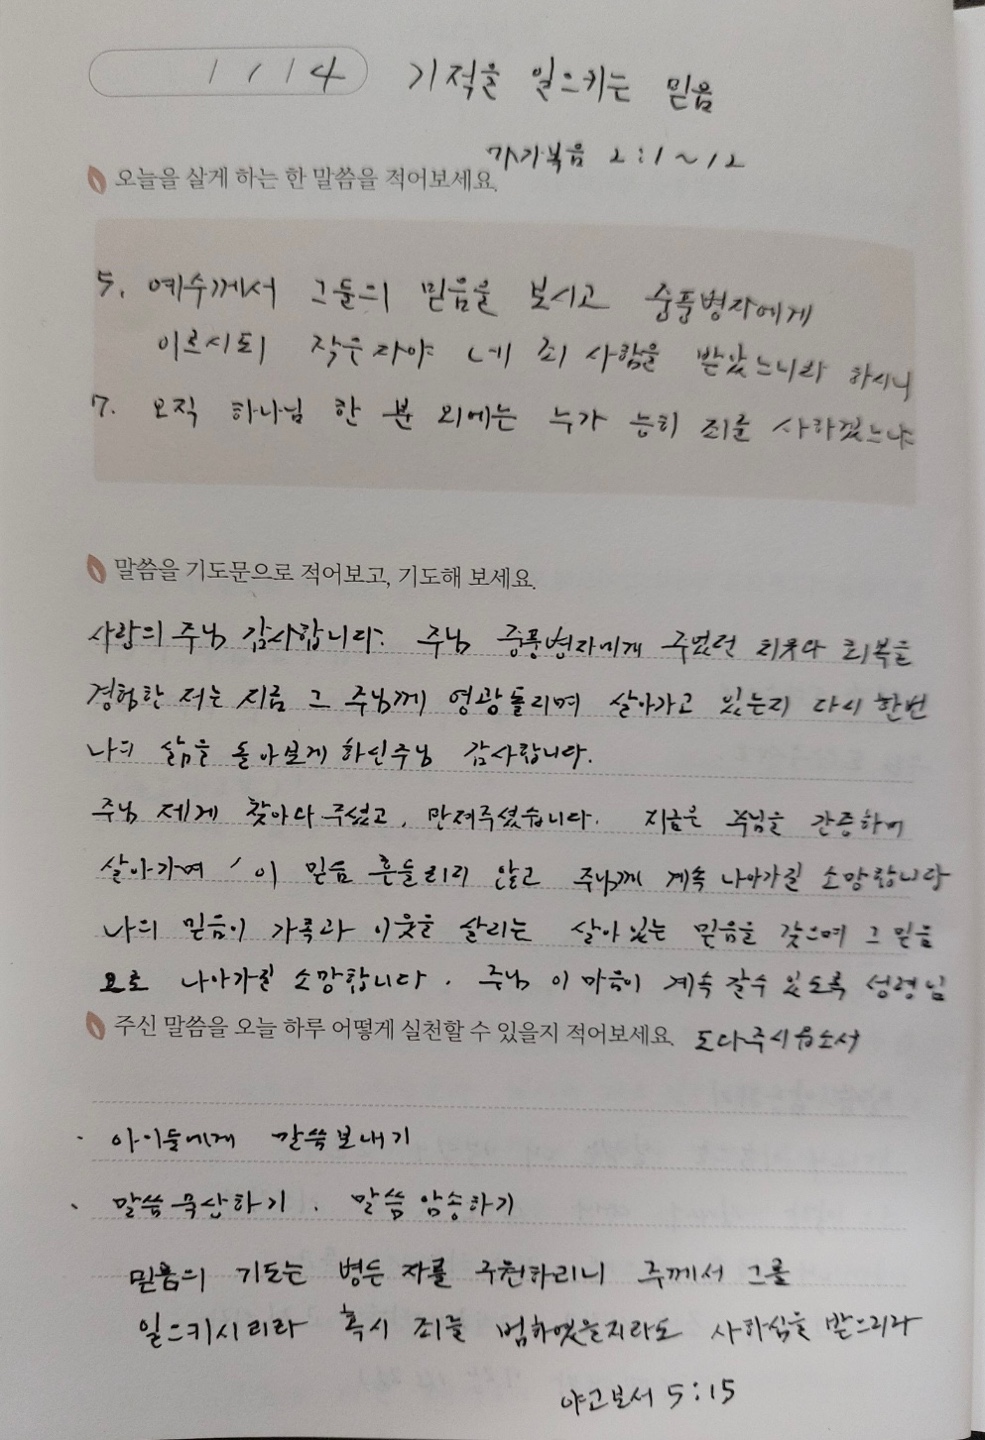 1 / 14 기적을 일으키는 믿음
마가복음 2:1~12
오늘을 살게 하는 한 말씀을 적어보세요.
5. 예수께서 그들의 믿음을 보시고 중풍병자에게
이르시되 작은 자야 네 죄 사함을 받았느니라 하시니
7. 오직 하나님 한 분 외에는 누가 능히 죄를 사하겠느냐
말씀을 기도문으로 적어보고, 기도해 보세요.
사랑의 주님 감사합니다. 주님 중풍병자에게 주었던 치유와 회복을
경험한 저는 지금 그 주님께 영광돌리며 살아가고 있는지 다시 한번
나의 삶을 돌아보게 하신주님 감사합니다.
주님 제게 찾아와 주셨고, 만져주셨습니다. 지금은 주님을 간증하며
살아가며 이 믿음 흔들리지 않고 주님께 계속 나아가길 소망합니다
나의 믿음이 가족과 이웃을 살리는 살아있는 믿음을 갖으며 그 믿음
으로 나아가길 소망합니다. 주님 이 마음이 계속 갈수 있도록 성령님
주신 말씀을 오늘 하루 어떻게 실천할 수 있을지 적어보세요. 도와주시옵소서
· 아이들에게 말씀보내기
· 말씀묵상하기. 말씀 암송하기
믿음의 기도는 병든 자를 구원하리니 주께서 그를
일으키시리라 혹시 죄를 범하였을지라도 사하심을 받으리라
야고보서 5:15